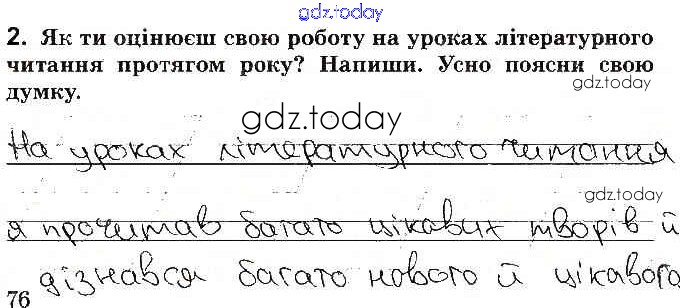 gdz.today
2. Як ти оцінюєш свою роботу на уроках літературного
читання протягом року? Напиши. Усно поясни свою
думку.
gdz.today
gdz.today
На уроках літературного читання
gdz.today
я прочитав багато цікавих творів й
дізнався багато нового й цікавого
76